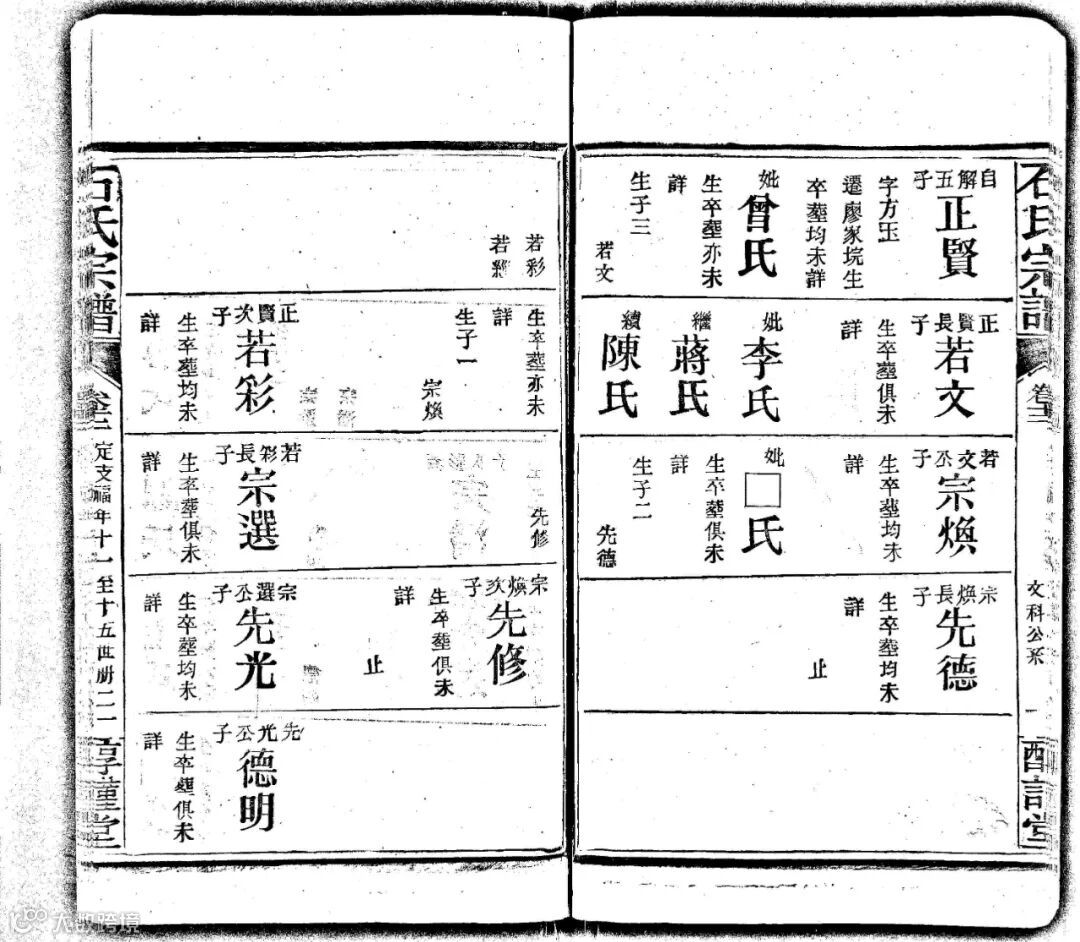 石氏宗譜
卷十二
文科公系
一
自解五子
正賢
字方玉
遷廖家垸生
卒塟均未詳
妣曾氏
生卒塟亦未
詳
生子三
若文
若彩
正賢長子
若文
生卒塟俱未
詳
妣李氏
繼蔣氏
續陳氏
生卒塟亦未
詳
生子一
宗煥
正賢次子
若彩
生卒塟均未
詳
若文公子
宗煥
生卒塟均未
詳
妣□氏
生卒塟俱未
詳
生子二
先德
先修
若彩長子
宗選
生卒塟俱未
詳
宗煥長子
先德
生卒塟均未
詳
止
宗煥次子
先修
生卒塟俱未
詳
止
宗選公子
先光
生卒塟均未
詳
先光公子
德明
生卒塟俱未
詳
石氏宗譜
定支福年十一至十五世册二一
大数跨境